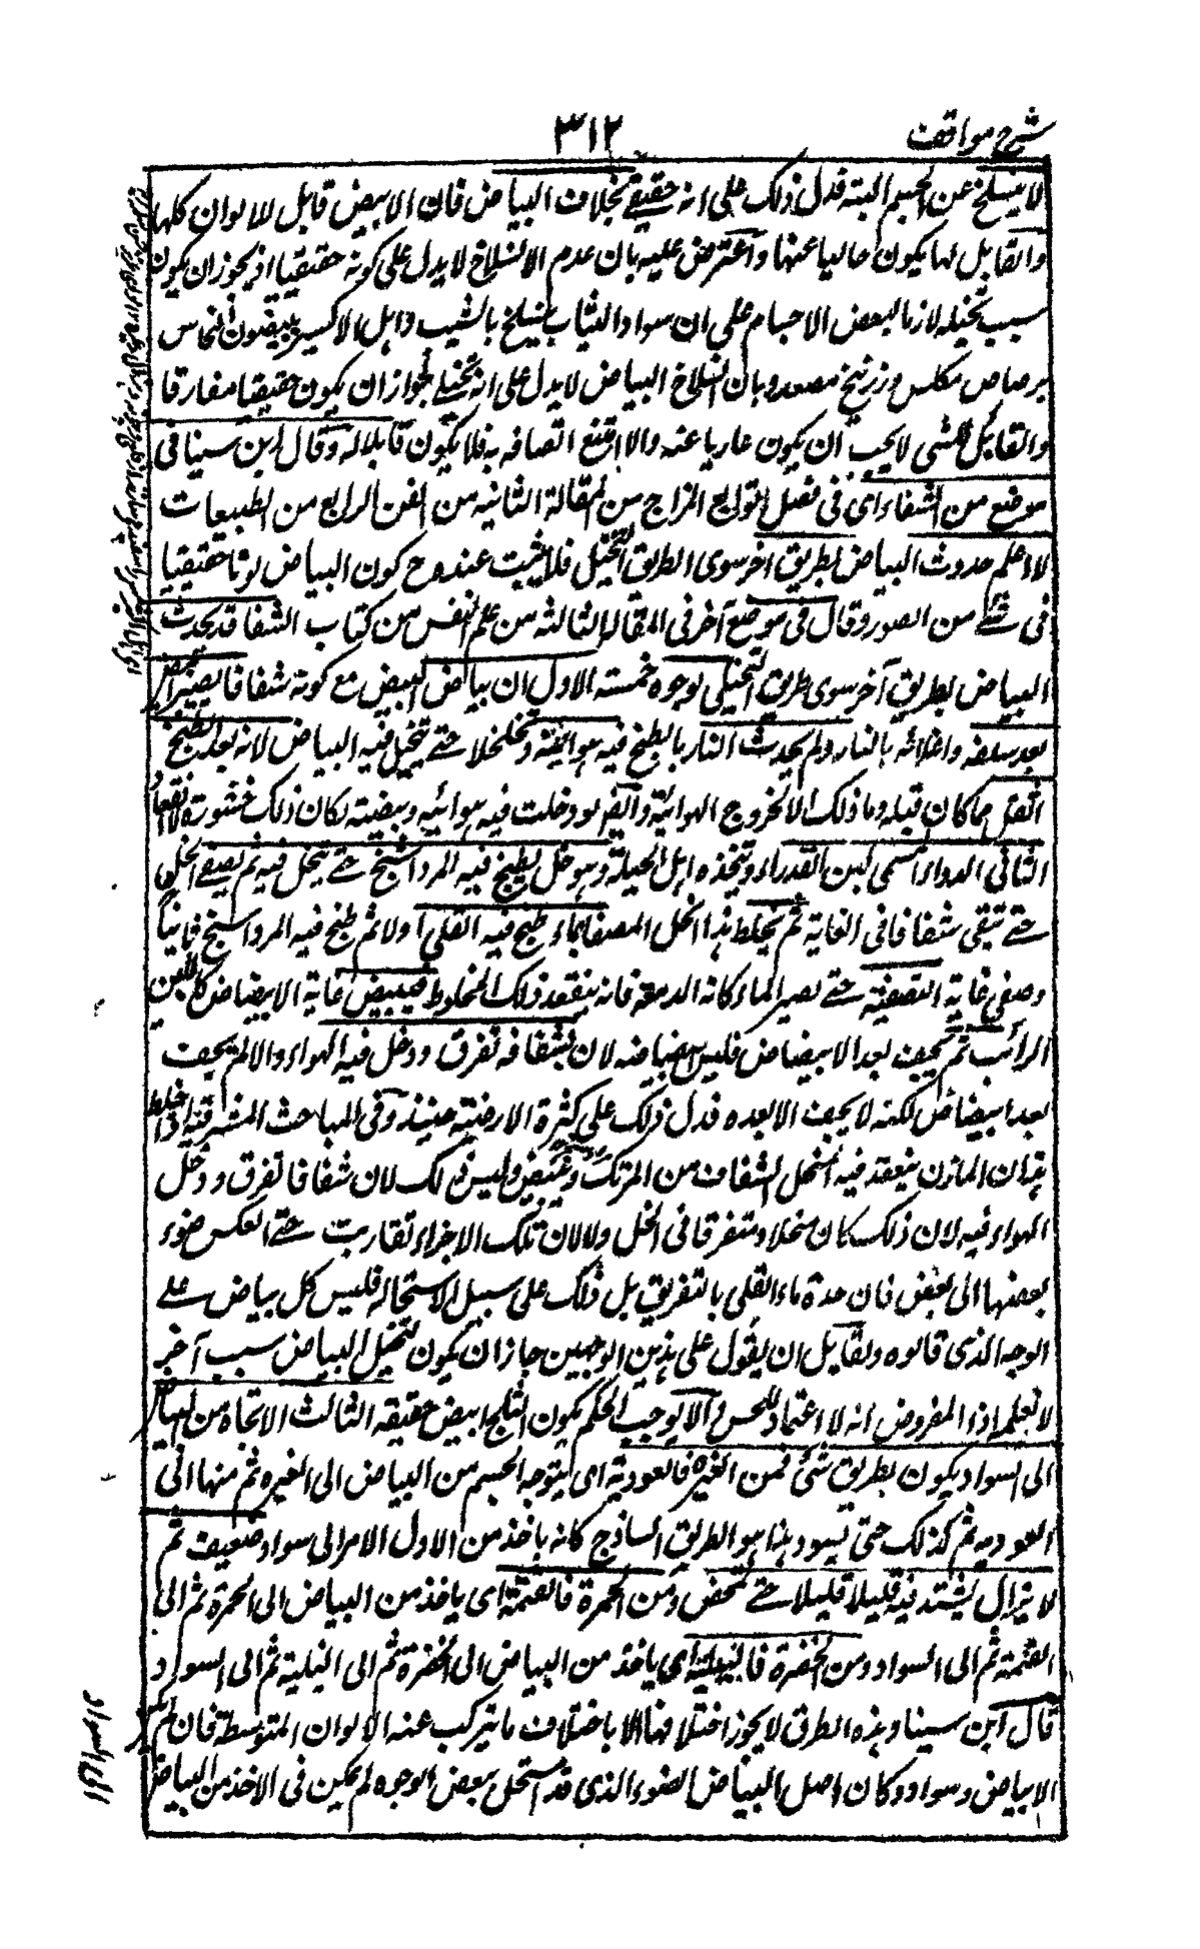 شرح مواقف
٣١٢
لا ينسلخ عن الجسم البتة فدل ذلك على انه حقيقي بخلاف البياض فان الابيض قابل للالوان كلها
والقابل لها يكون خاليا عنها واعترض عليه بان عدم الانسلاخ لا يدل على كونه حقيقيا اذ يجوز ان يكون
سبب تخيله لازما لبعض الاجسام على ان سواد الشاب ينسلخ بالشيب واهل الاكسير يبيضون النحاس
برصاص مكلس وزرنيخ مصعد وبان انسلاخ البياض لا يدل على انه تخيلي لجواز ان يكون حقيقيا مفارقا
والقابل للشي لا يجب ان يكون عاريا عنه والا امتنع اتصافه به فلا يكون قابلا له وقال ابن سينا في
موضع من الشفاء اي في فصل توابع المزاج من المقالة الثانية من الفن الرابع من الطبيعات
لا اعلم حدوث البياض بطريق اخر سوى الطريق التخيل فلا يثبت عنده ح كون البياض لونا حقيقيا
في شي من الصور وقال في موضع آخر في المقالة الثالثة من علم النفس من كتاب الشفا قد يحدث
البياض بطريق آخر سوى طريق التخيلي لوجوه خمسة الاول ان بياض البيض مع كونه شفافا يصير ابيض
بعد سلقه واغلائه بالنار ولم يحدث النار بالطبخ فيه هوائية وتخلخلا حتى يتخيل فيه البياض لانه بعد الطبخ
اثقل مما كان قبله وما ذلك الا لخروج الهوائية وايضا لو دخلت فيه هوائية وبيضته لكان ذلك خثورة لا انعقادا
الثاني الدواء المسمى لبن العذراء ويتخذه اهل الحيلة وهو خل يطبخ فيه المرداسنج حتى ينحل فيه ثم يصفى الخل
حتى تبقى شفافا في الغاية ثم يخلط هذا الخل المصفا بماء طبخ فيه القلي اولا ثم طبخ فيه المرداسنج ثانيا
وصفي غاية التصفية حتى تصير الماء كانه الدمعة فانه ينعقد ذلك المخلوط فيبيض غاية الابيضاض كاللبن
الرائب ثم يجف بعد الابيضاض فليس ابيضاضه لان شفافه تفرق ودخل فيه الهواء والا لم يجف
بعد ابيضاض لكنه لا يجف الا بعده فدل ذلك على كثرة الارضية حينئذ وفي المباحث المشرقية اذا خلط
هذان الماآن ينعقد فيه المنحل الشفاف من المرتك ويبيض وليس ذلك لان شفافا تفرق ودخل
الهواء فيه لان ذلك كان منحلا ومتفرقا في الخل ولا لان تلك الاجزاء تقاربت حتى انعكس ضوء
بعضها الى بعض فان حدة ماء القلي بالتفريق بل ذلك على سبيل الاستحالة فليس كل بياض على
الوجه الذي قالوه ولقايل ان يقول على هذين الوجهين جاز ان يكون لتخيل البياض سبب آخر
لا نعلمه اذا المفروض انه لا اعتماد للحس والا لوجب الحكم بكون الثلج ابيض حقيقة الثالث الاتجاه من البياض
الى السواد يكون بطريق شئ فمن الغبرة فالعودية اي يتوجه الجسم من البياض الى الغبرة ثم منها الى
العودية ثم كذلك حتى يسود وهذا هو الطريق الساذج كانه ياخذ من الاول الامر الى سواد ضعيف ثم
لا يزال يشتد فيه قليلا قليلا حتى تمحض ومن الحمرة فالقتمة اي ياخذ من البياض الى الحمرة ثم الى
القتمة ثم الى السواد ومن الخضرة فالنيلية اي ياخذ من البياض الى الخضرة ثم الى النيلية ثم الى السواد
قال ابن سينا وهذه الطرق لا يجوز اختلافها الا باختلاف ما تتركب عنه الالوان المتوسطة فان لم يكن
الا بياض وسواد وكان اصل البياض الضوء الذي قد استحل ببعض الوجوه لم يمكن في الاخذ من البياض